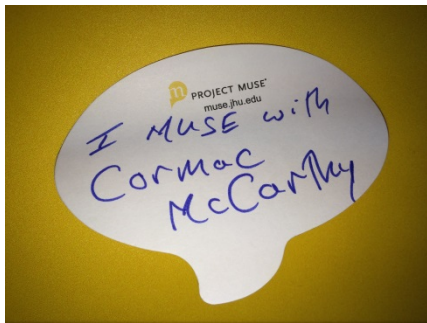 PROJECT MUSE®
muse.jhu.edu
I MUSE with
Cormac
McCarthy